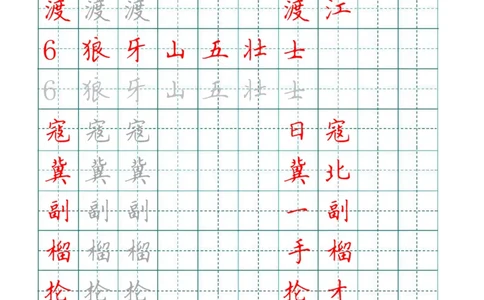 渡 渡 渡 渡 江
6 狼 牙 山 五 壮 士
6 狼 牙 山 五 壮 士
寇 寇 寇 日 寇
冀 冀 冀 冀 北
副 副 副 一 副
榴 榴 榴 手 榴
抡 抡 抡 抡 才